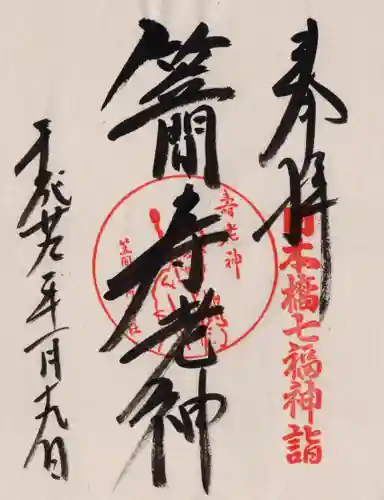 奉拝
日本橋七福神詣
笠間寿老神
寿老神
平成廿九年一月十九日